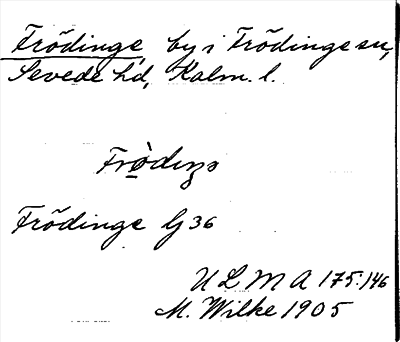 Frödinge, by i Frödinge sn,
Sevede hd, Kalm. l.
Frödinge G 36
ULMA 175:146
M. Wilke 1905